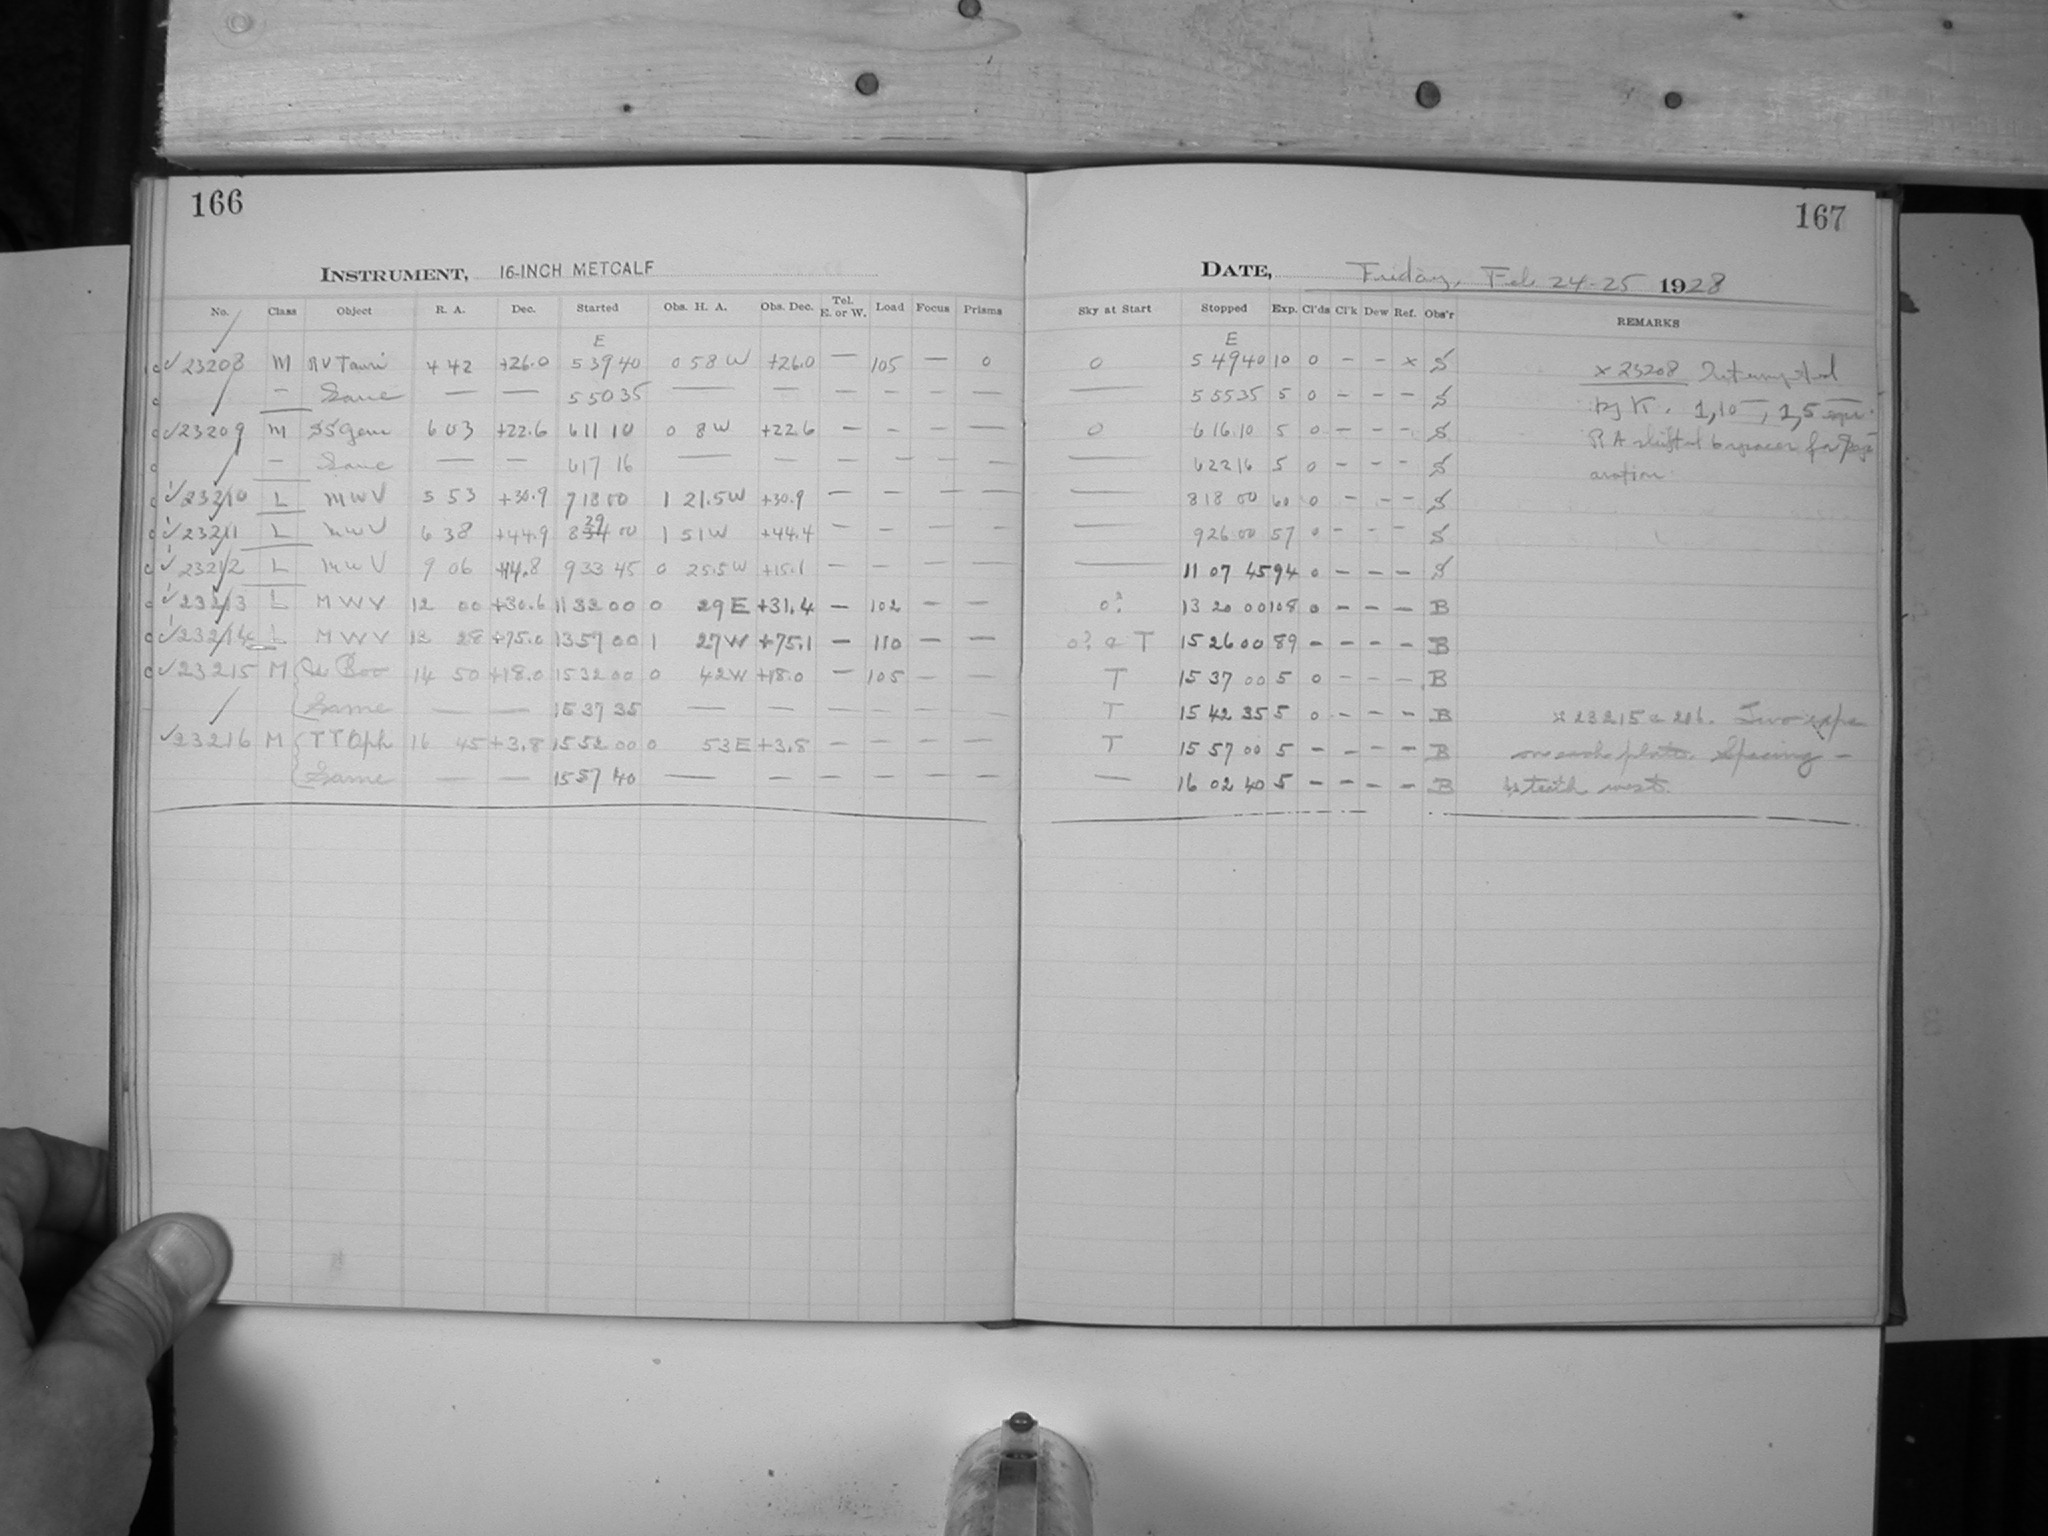 166
INSTRUMENT, 16-INCH METCALF
No. Class Object R. A. Dec. Started Obs. H. A. Obs. Dec. Tel. E. or W. Load Focus Prisms
E
✓23208 M RV Tauri 4 42 +26.0 5 39 40 0 58 W +26.0 — 105 — 0
— Same — — 5 50 35 — — — — — —
✓23209 M SS Gem 6 03 +22.6 6 11 10 0 8 W +22.6 — — — —
— Same — — 6 17 16 — — — — — —
✓23210 L MWV 5 53 +30.9 7 18 00 1 21.5 W +30.9 — — — —
✓23211 L MWV 6 38 +44.9 8 29 00 1 51 W +44.4 — — — —
✓23212 L MWV 9 06 +14.8 9 33 45 0 25.5 W +15.1 — — — —
✓23213 L MWV 12 00 +30.6 11 32 00 0 29 E +31.4 — 102 — —
✓23214 L MWV 12 28 +75.0 13 57 00 1 27 W +75.1 — 110 — —
✓23215 M Boo 14 50 +18.0 15 32 00 0 42 W +18.0 — 105 — —
Same — — 15 37 35 — — — — — —
✓23216 M TT Oph 16 45 +3.8 15 52 00 0 53 E +3.8 — — — —
Same — — 15 57 40 — — — — — —
167
DATE, Friday, Feb 24-25 1928
Sky at Start Stopped Exp. Cl'ds Cl'k Dew Ref. Obs'r REMARKS
E
0 5 49 40 10 0 — — x S x 23208 Interrupted
— 5 55 35 5 0 — — — S by K. 1, 10—, 1, 5
0 6 16 10 5 0 — — — S RA shifted 6 spaces for
— 6 22 16 5 0 — — — S
— 8 18 00 60 0 — — — S
— 9 26 00 57 0 — — — S
— 11 07 45 94 0 — — — S
0? 13 20 00 108 0 — — — B
0? & T 15 26 00 89 — — — — B
T 15 37 00 5 0 — — — B
T 15 42 35 5 0 — — — B x 23215 & 216. Two exps
T 15 57 00 5 — — — — B on each plate. Spacing —
— 16 02 40 5 — — — — B teeth west.